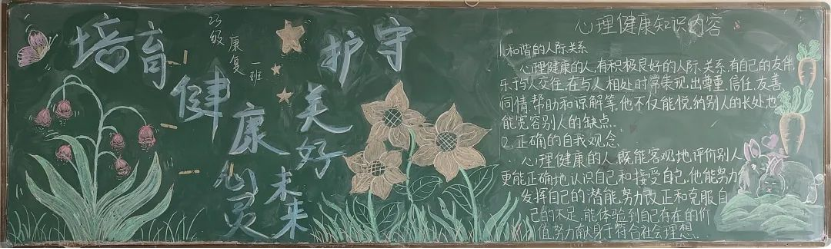 培育
健
康
心
灵
护守
美
好
未
来
23级
康复
一班
心理健康知识内容
1.和谐的人际关系
心理健康的人,有积极良好的人际关系,有自己的友伴
乐于与人交往,在与人相处时常表现出尊重,信任,友善
同情,帮助和谅解等,他不仅能悦纳别人的长处也
能宽容别人的缺点.
2.正确的自我观念
心理健康的人,既能客观地评价别人
更能正确地认识自己和接受自己,他能努力
发挥自己的潜能,努力改正和克服自
己的不足,能体验到自己存在的价
值,努力献身于符合社会理想.